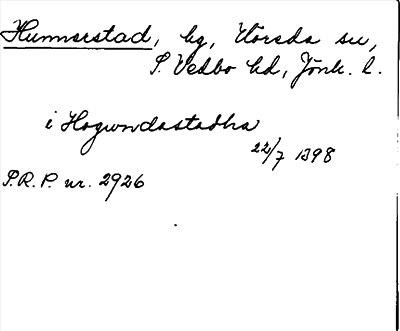 Hunnerstad, by, Flóreda su,
S. Vedbo hd, Jönk. l.
i Hogwndastadha
22/7 1398
S.R.P. nr. 2926